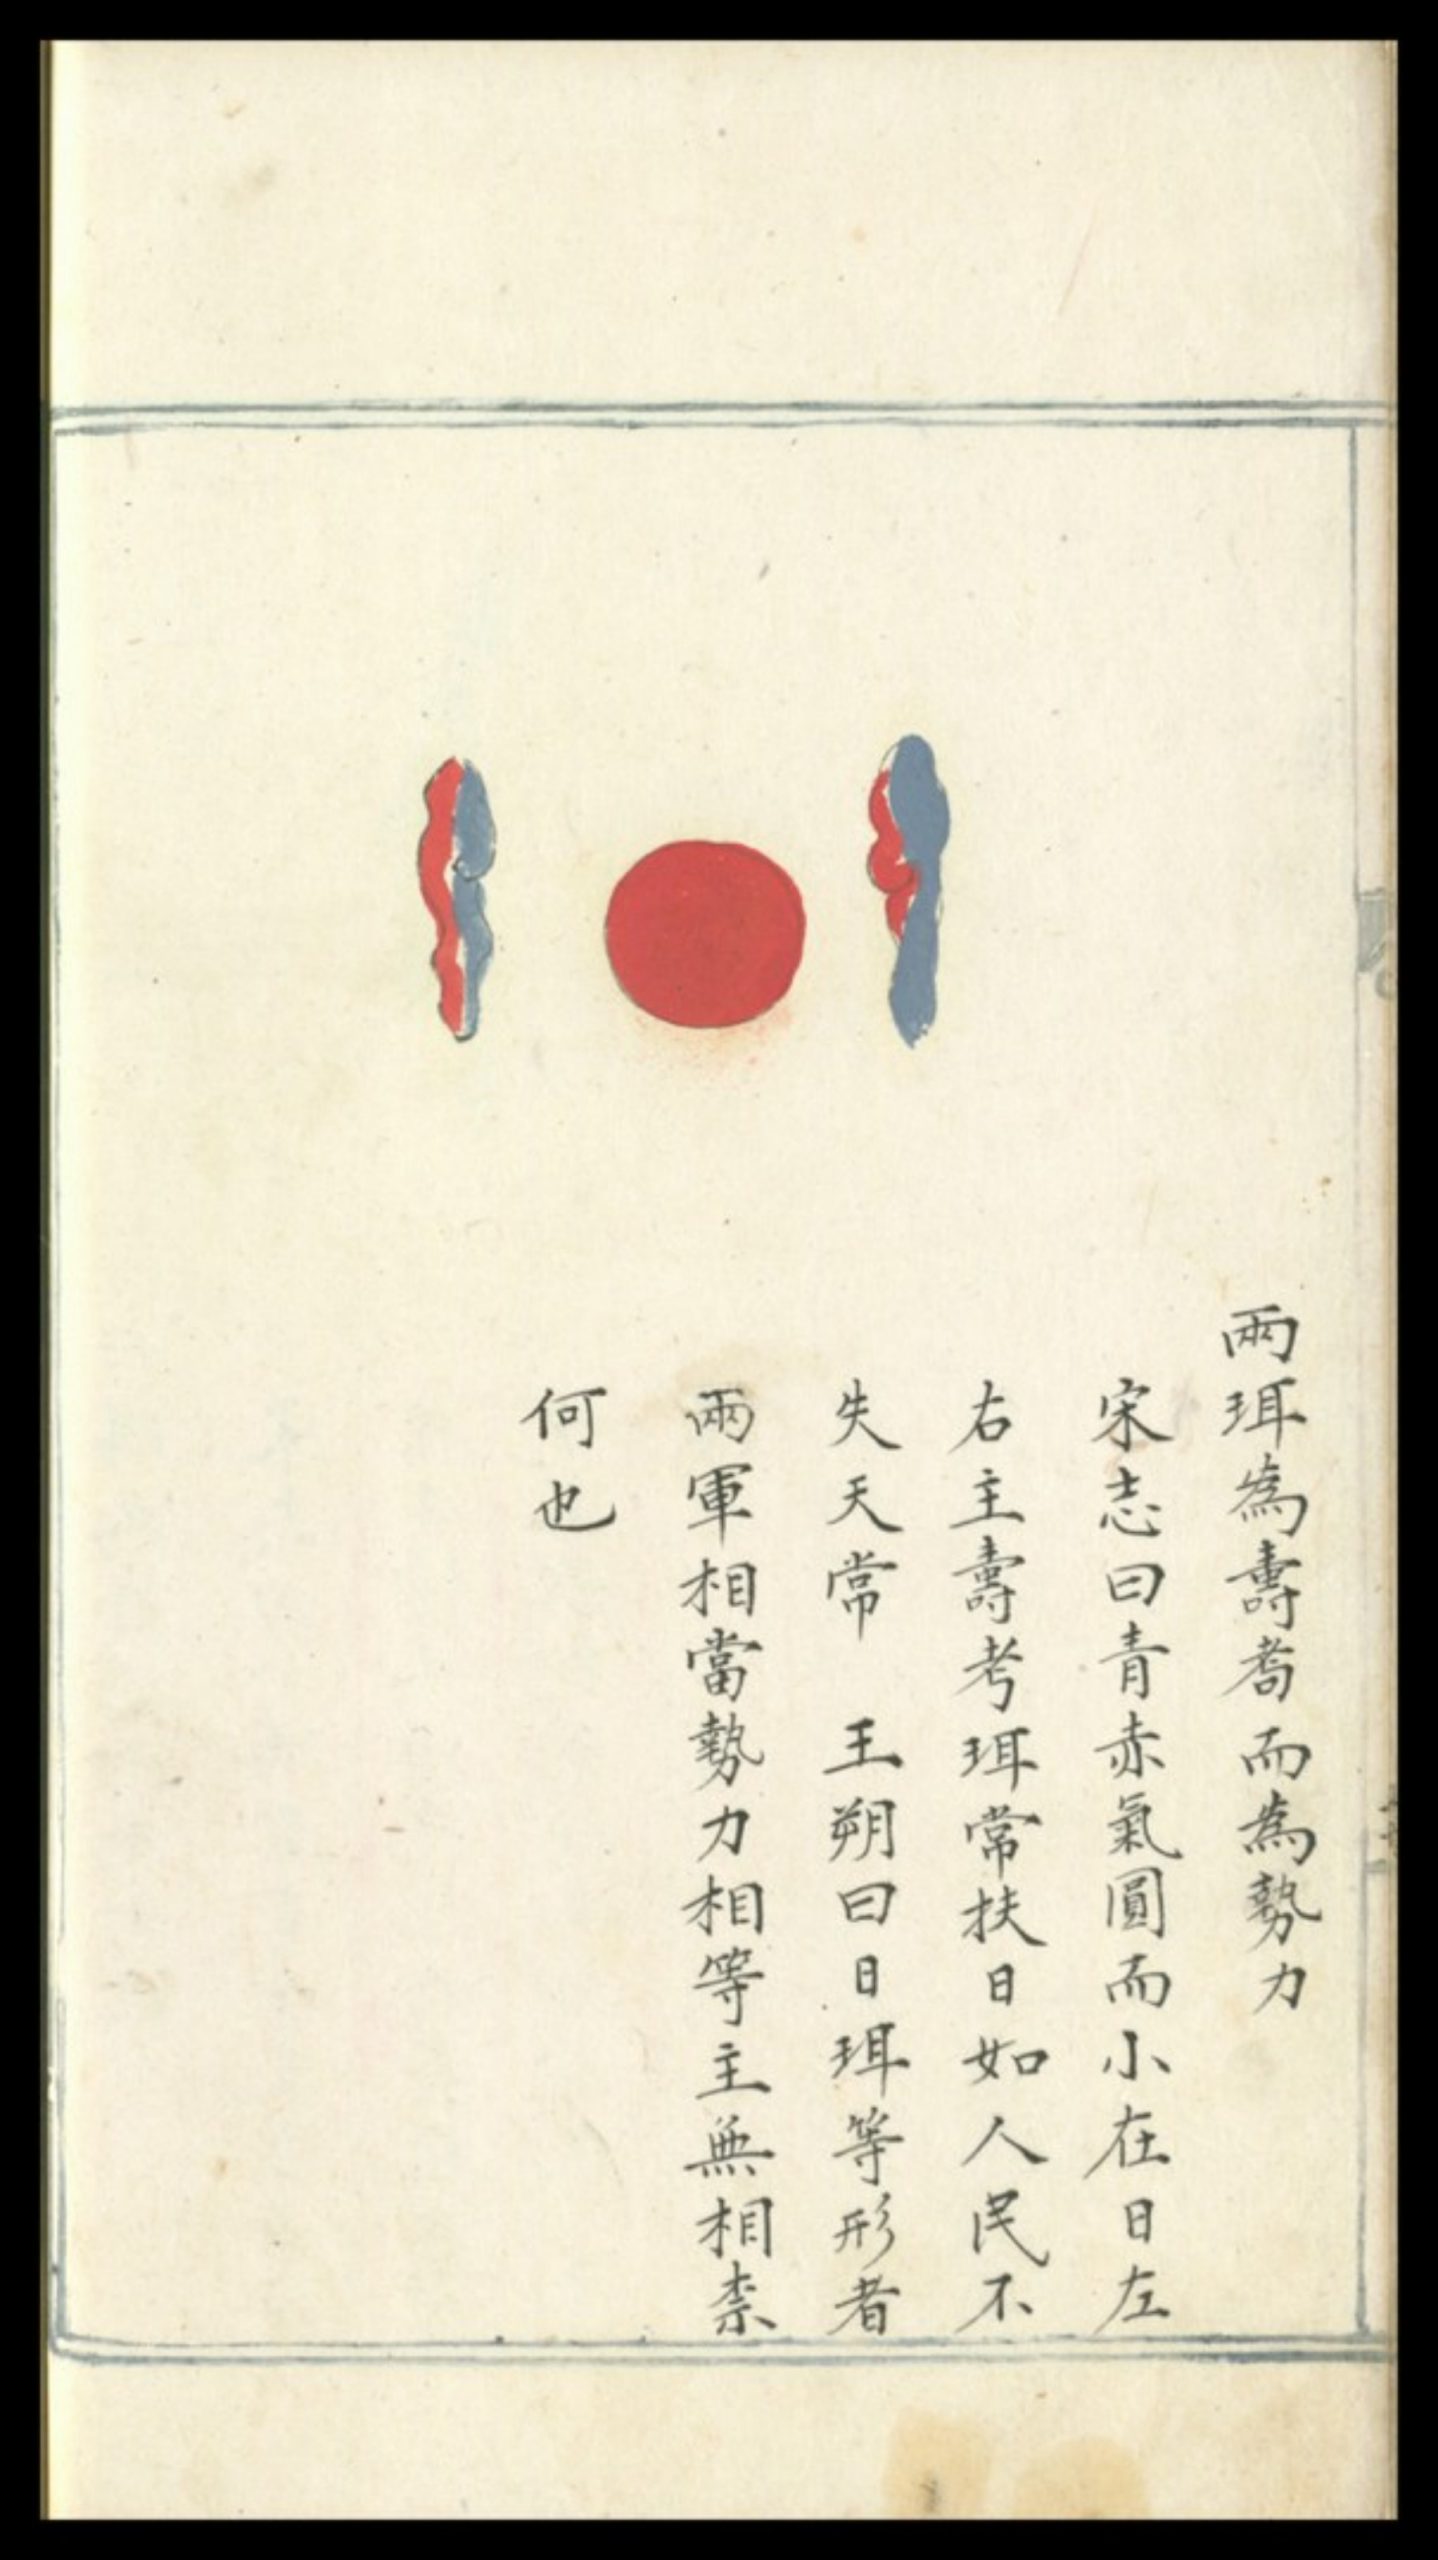 兩珥為壽耇而為勢力
宋志曰青赤氣圓而小在日左
右主壽考珥常扶日如人民不
失天常　王朔曰日珥等形者
兩軍相當勢力相等主無相柰
何也